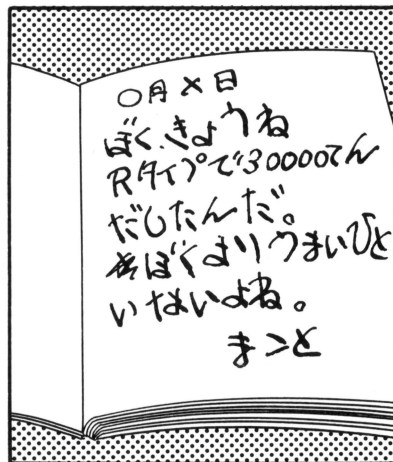 ○月×日
ぼく、きょうね
Rタイプで300000てん
だしたんだ。
ぼくよりうまいひと
いないよね。
まこと